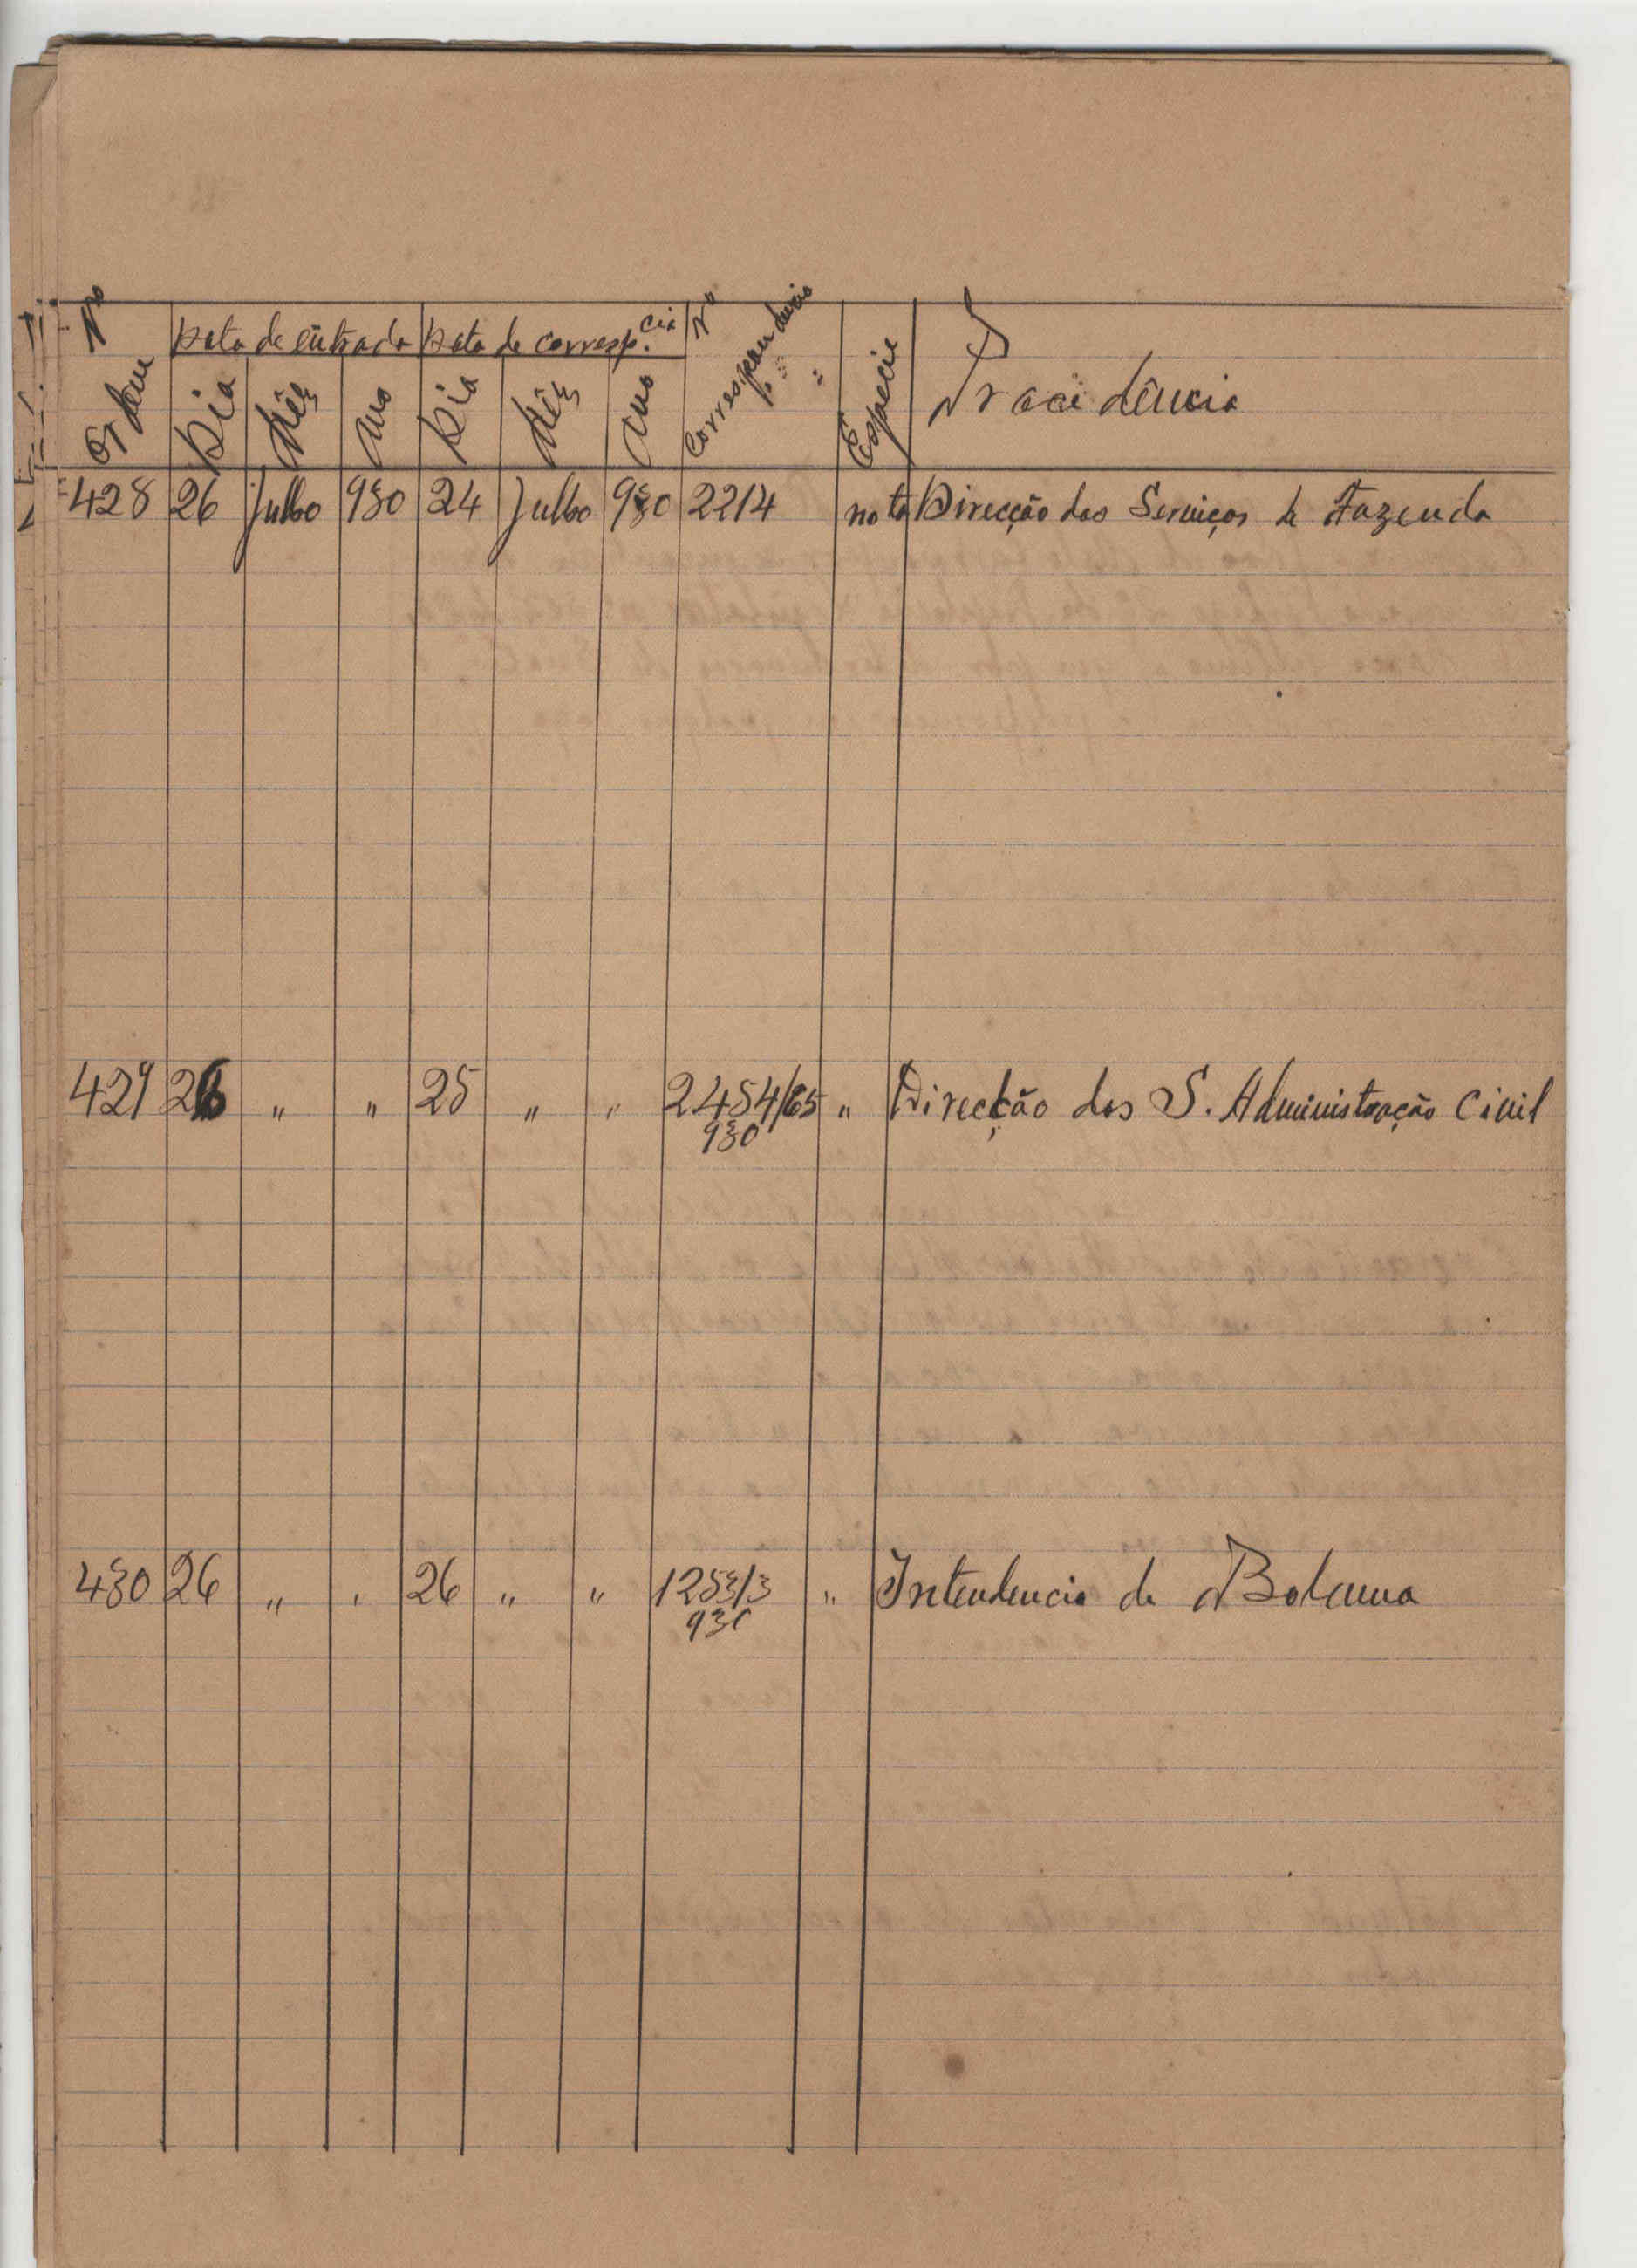 Nº Ordem Data de entrada Data de corresp.cia Nº Correspondencia Espécie Procidência
Dia Mês Ano Dia Mês Ano
428 26 Julho 930 24 Julho 930 2214 nota Direcção dos Serviços de Fazenda
429 26 " " 25 " " 2454/65 " Direcção dos S. Administração Civil
930
430 26 " " 26 " " 1253/3 " Intendencia de Bolama
930